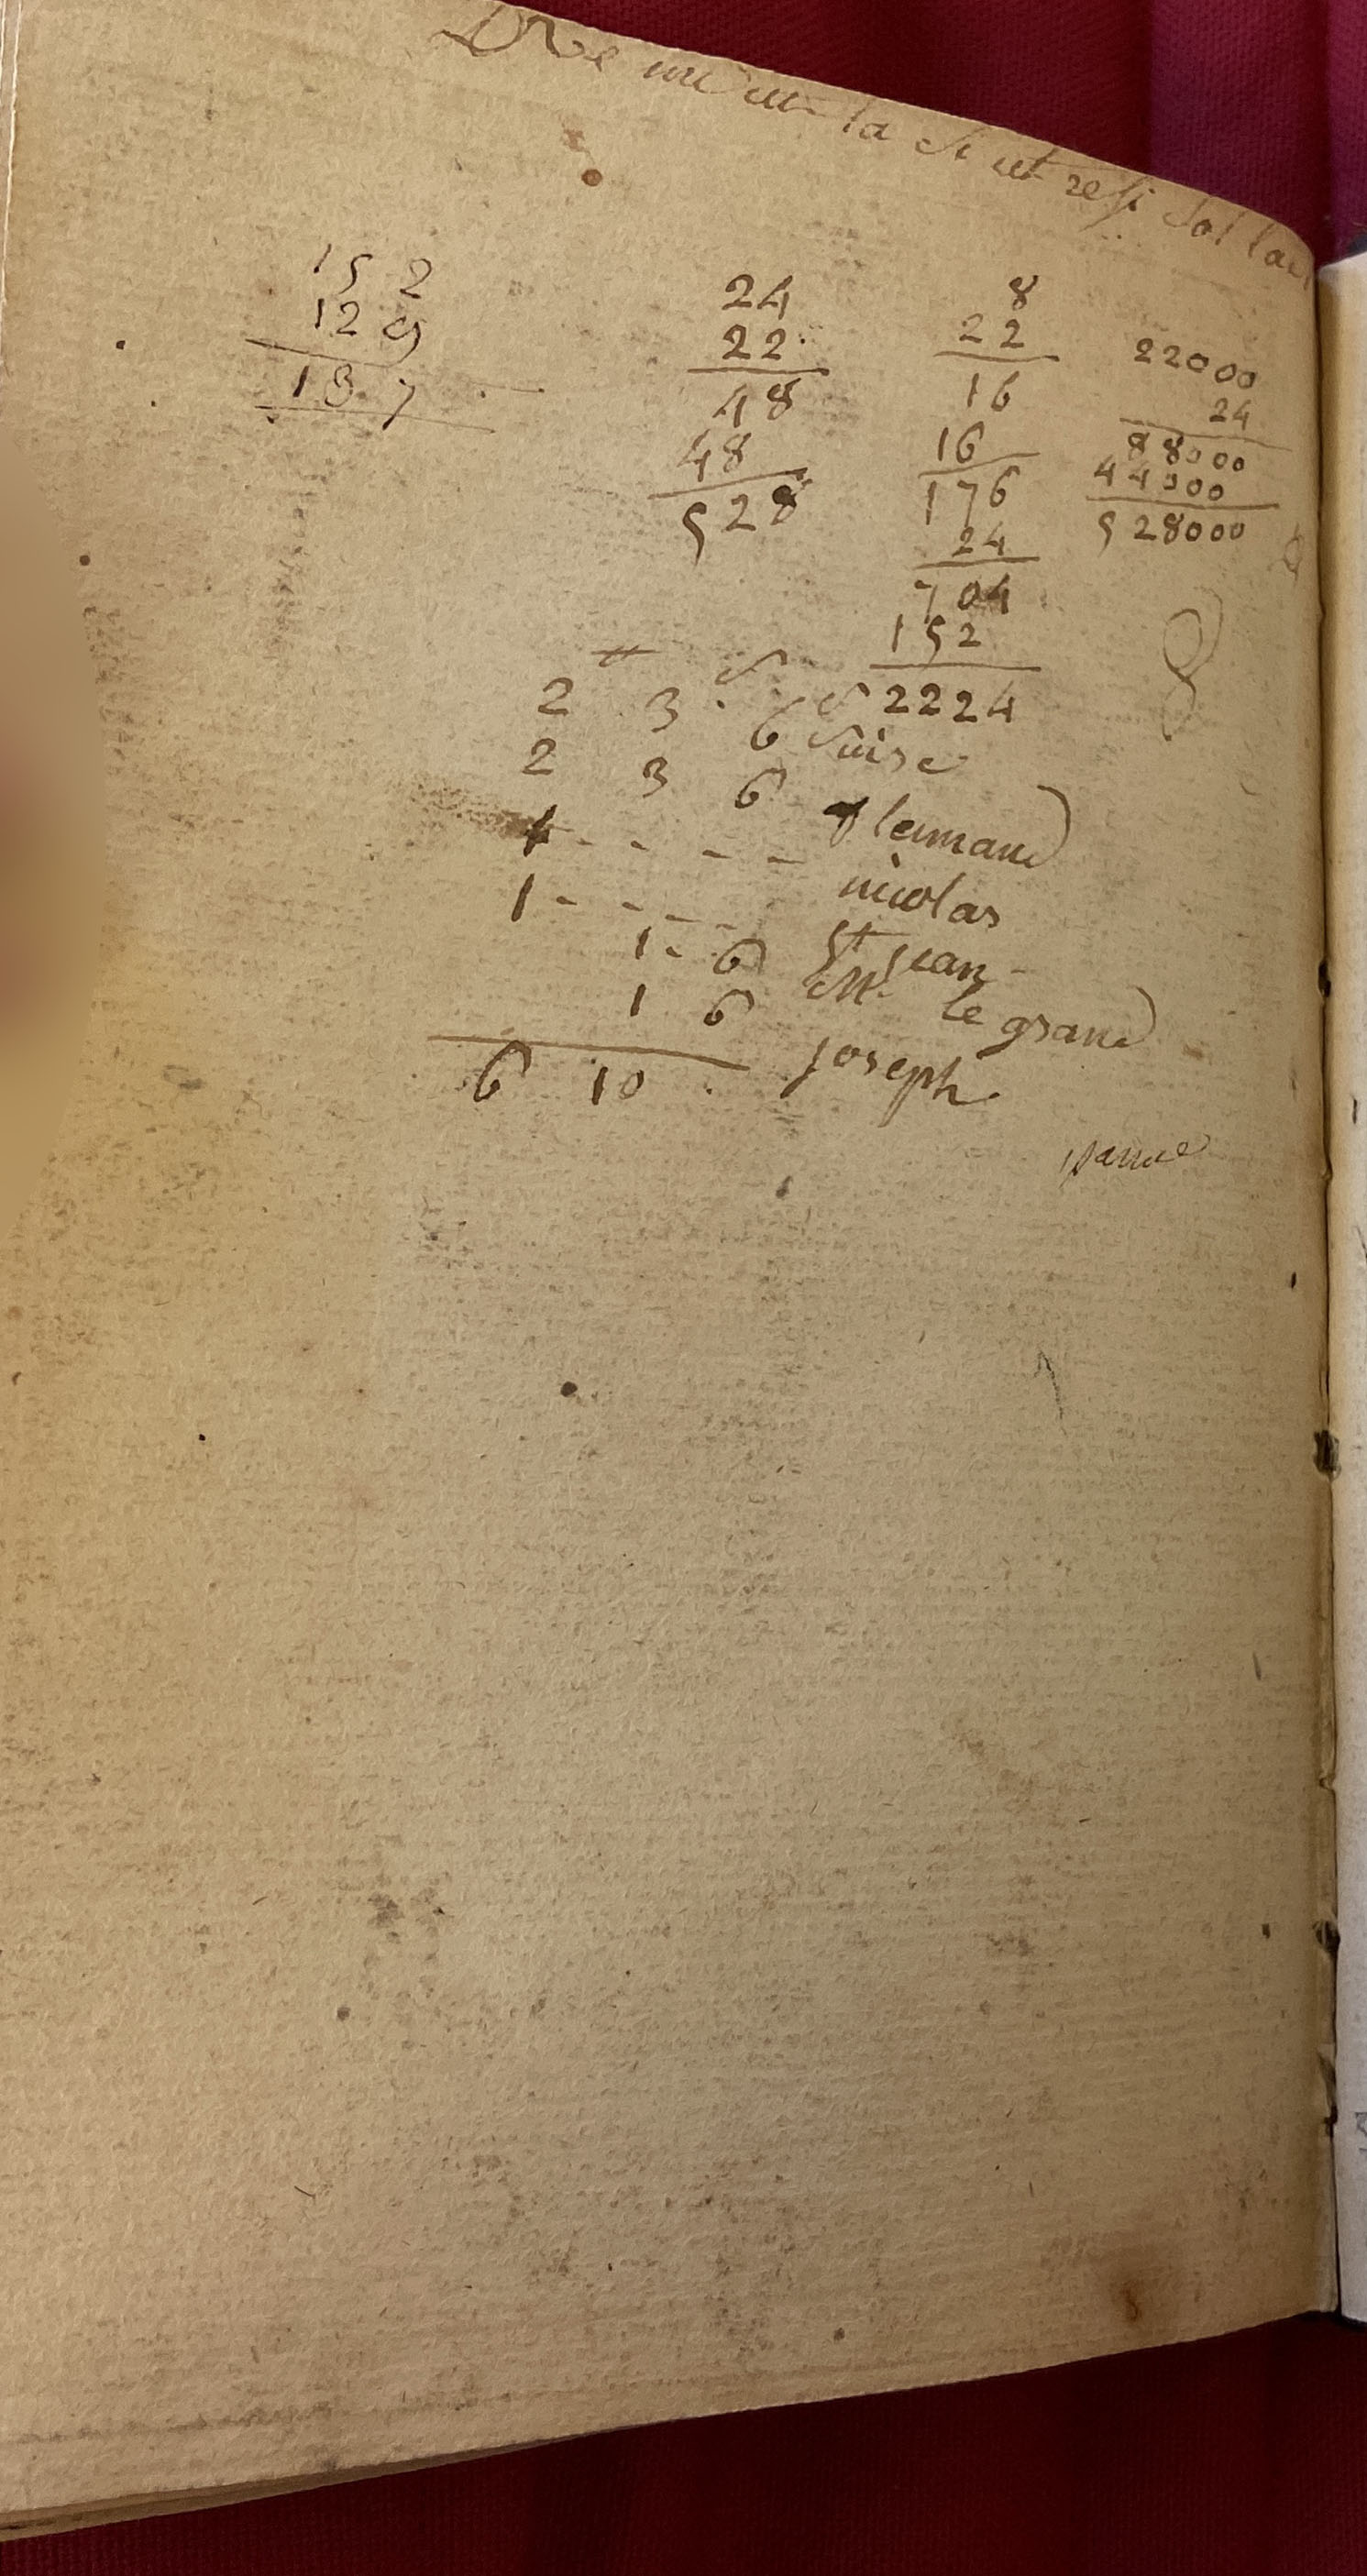 la si ut re si sol la
152
129
187
24
22
48
48
528
8
22
16
16
176
24
704
152
2224
22000
24
88000
44000
528000
2 3 6 Suise
2 3 6 flamand
1 - - - - nicolas
1 - - - - St jean
1 - 6 Mr. le grand
1 6 joseph
6 10